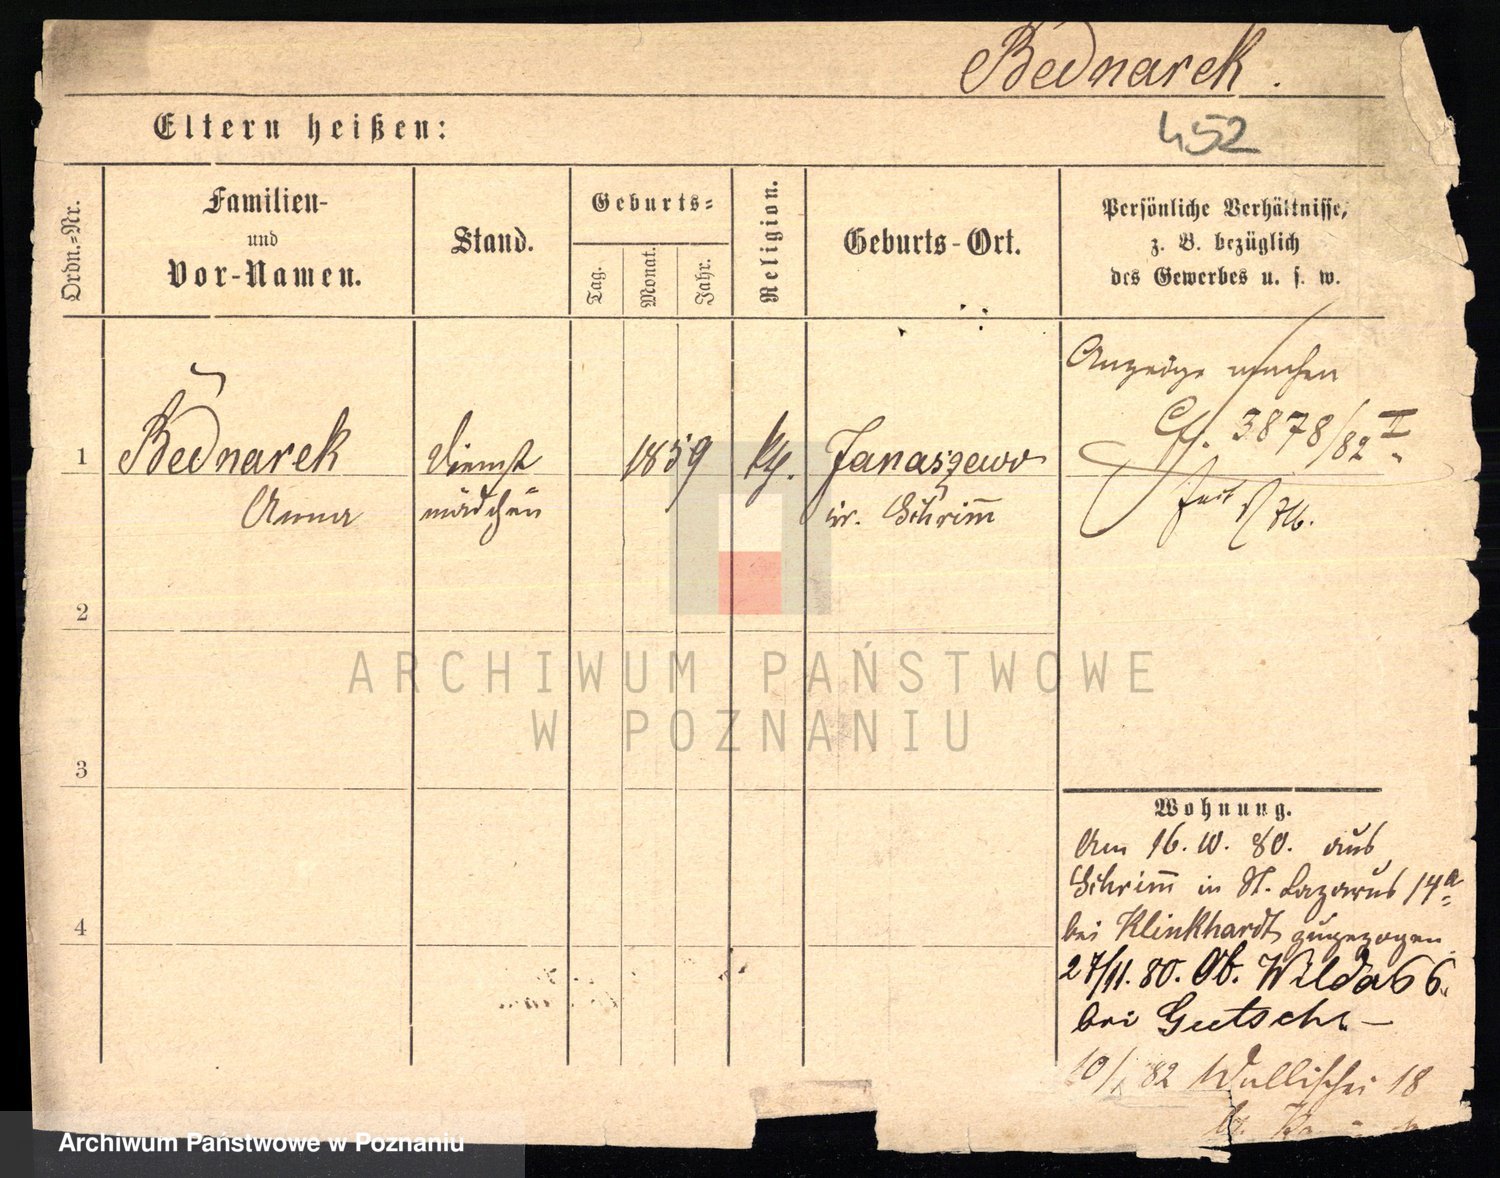 Bednarek.
Eltern heißen:
452
Ordn.=Nr.
Familien-
und
Vor-Namen.
Stand.
Geburts=
Tag.
Monat.
Jahr.
Religion.
Geburts-Ort.
Persönliche Verhältnisse,
z. B. bezüglich
des Gewerbes u. s. w.
Anzeige machen
Cf. 3878/82 II
1
Bednarek
Anna
Dienst
mädchen
1859
kth.
Janaszewo
Kr. Schrimm
2
3
4
Wohnung.
Am 16. 10. 80. aus
Schrimm in St. Lazarus 14a
bei Klinkhardt zugezogen
27/11. 80. Ob. Wilda 66.
bei Gutsche
10/1 82 Wallischei 18
ARCHIWUM PAŃSTWOWE
W POZNANIU
Archiwum Państwowe w Poznaniu